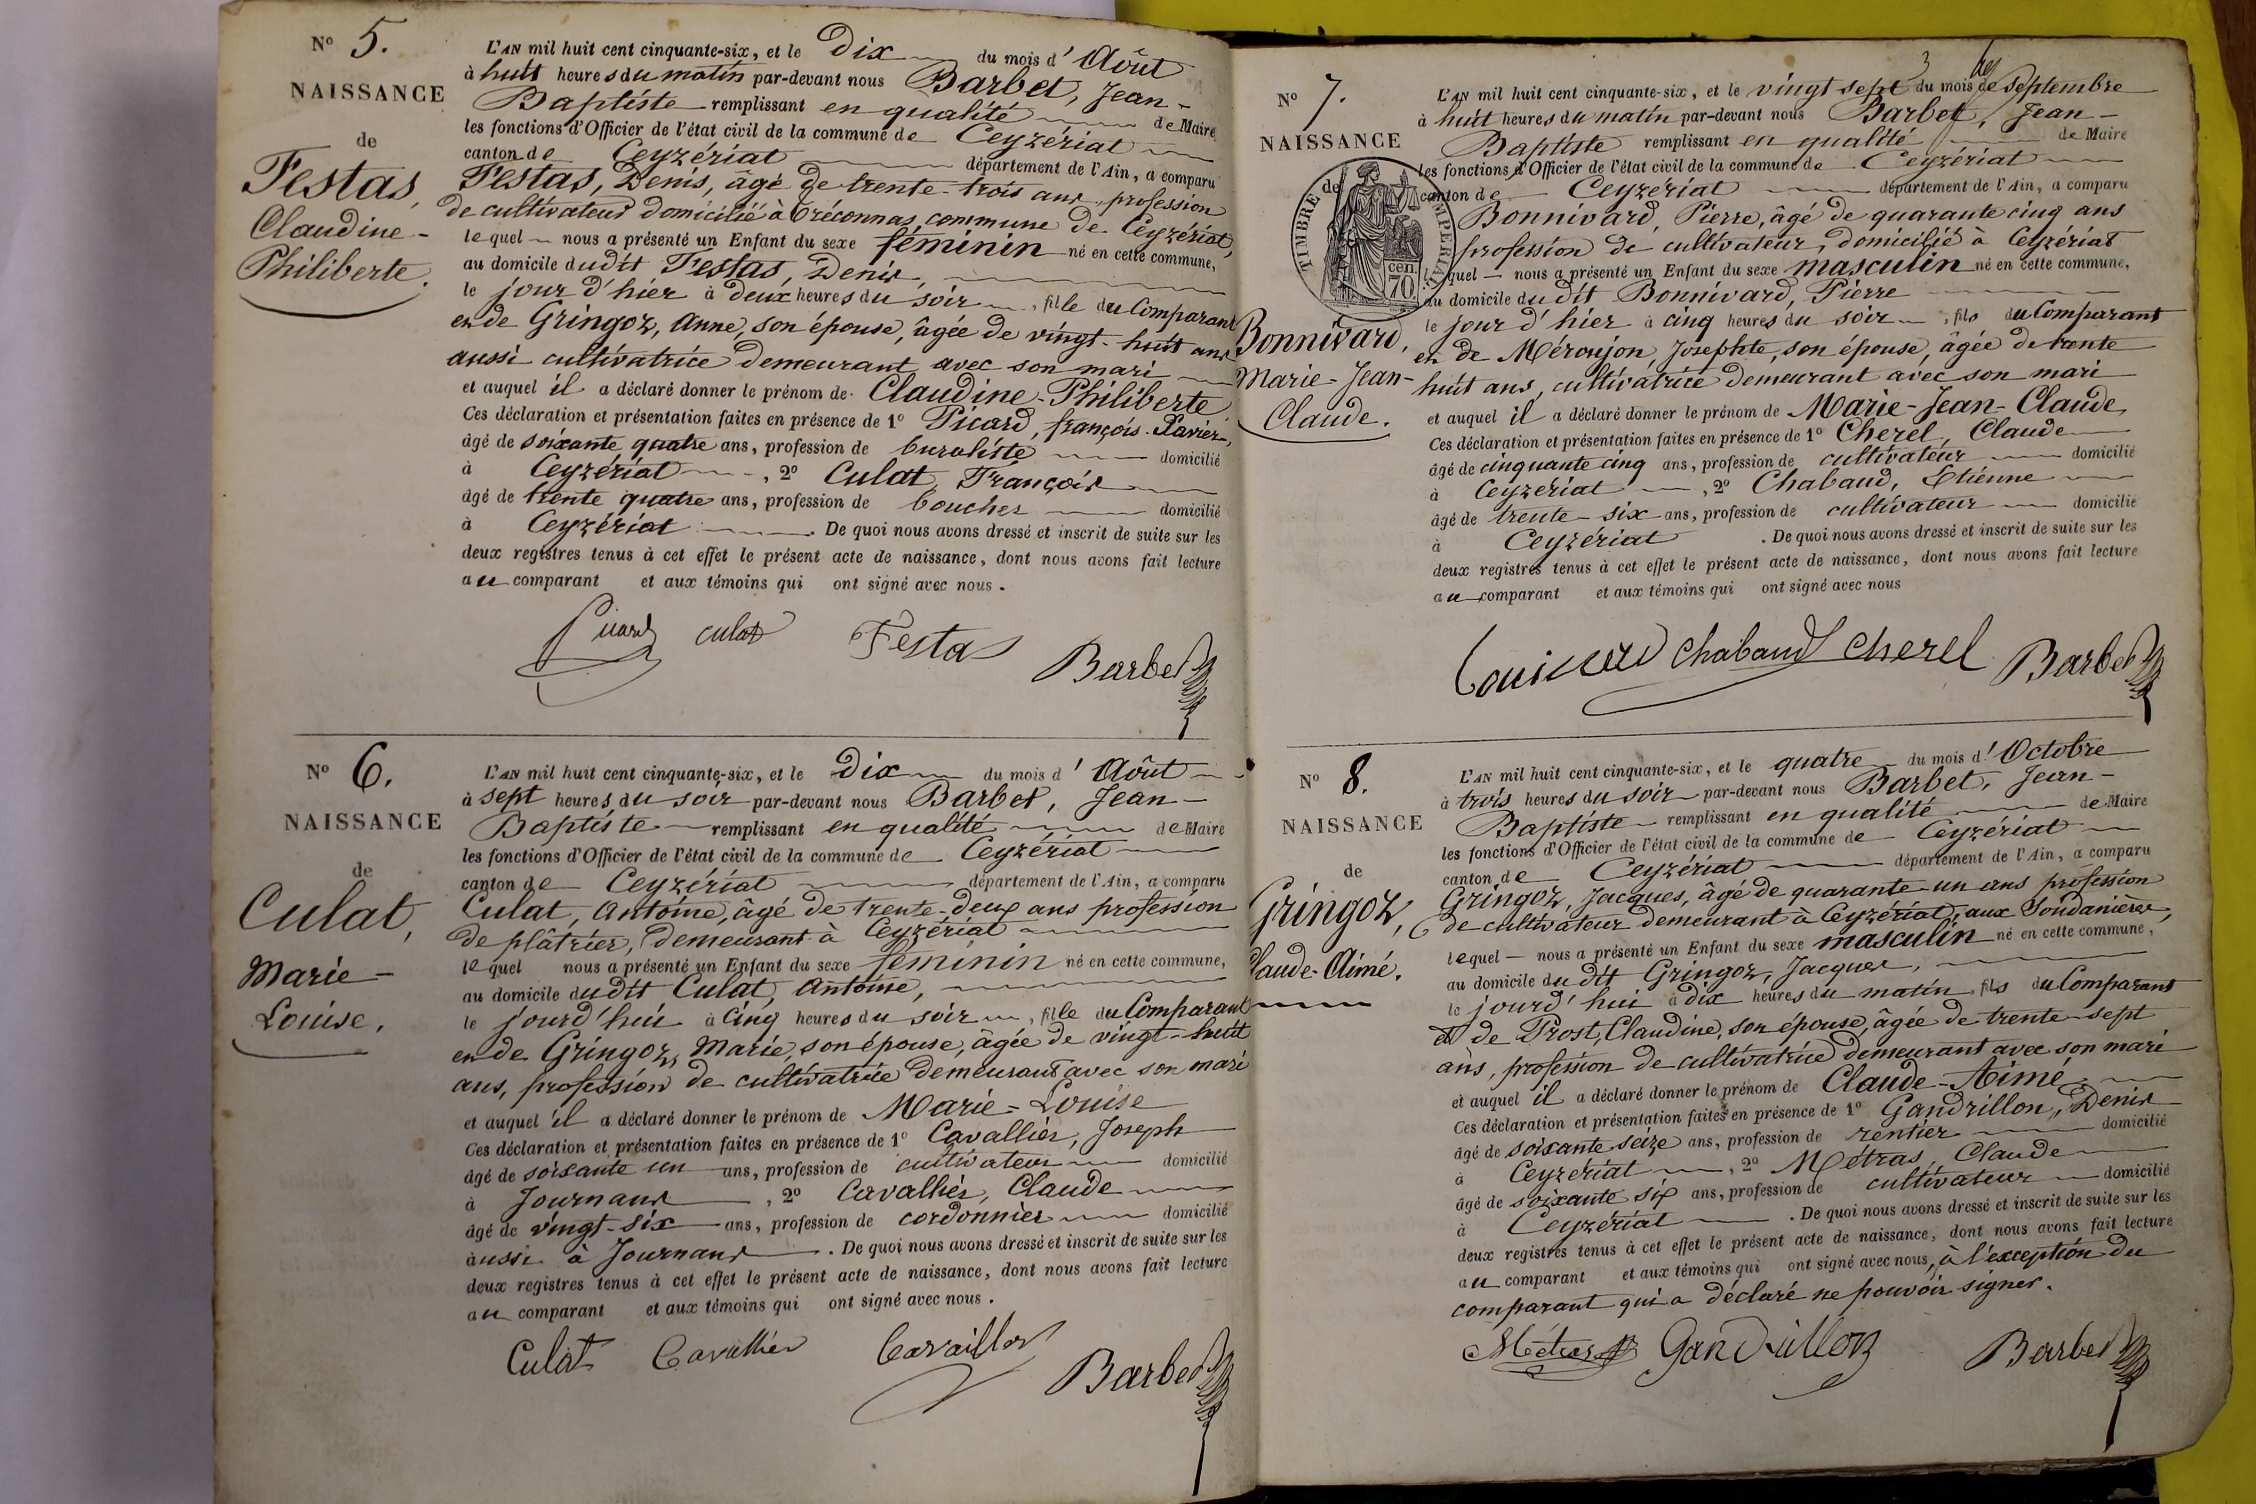 N° 5.
NAISSANCE
de
Festas,
Claudine-
Philiberte.
L'AN mil huit cent cinquante-six, et le Dix du mois d'Août
à huit heures du matin par-devant nous Barbet, Jean-
Baptiste remplissant en qualité de Maire
les fonctions d'Officier de l'état civil de la commune de Ceyzériat
canton de Ceyzériat département de l'Ain, a comparu
Festas, Denis, âgé de trente-trois ans, profession
de cultivateur domicilié à Tréconnas, commune de Ceyzériat,
lequel nous a présenté un Enfant du sexe féminin né en cette commune,
au domicile dudit Festas, Denis,
le jour d'hier à deux heures du soir, fille du Comparant
et de Gringoz, Anne, son épouse, âgée de vingt-huit ans
aussi cultivatrice demeurant avec son mari
et auquel il a déclaré donner le prénom de Claudine-Philiberte
Ces déclaration et présentation faites en présence de 1° Picard, françois-Xavier,
âgé de soixante quatre ans, profession de buraliste domicilié
à Ceyzériat, 2° Culat, François
âgé de trente quatre ans, profession de boucher domicilié
à Ceyzériat. De quoi nous avons dressé et inscrit de suite sur les
deux registres tenus à cet effet le présent acte de naissance, dont nous avons fait lecture
au comparant et aux témoins qui ont signé avec nous.
Picard culat Festas Barbet
N° 6.
NAISSANCE
de
Culat,
Marie-
Louise,
L'AN mil huit cent cinquante-six, et le Dix du mois d'Août
à sept heures du soir par-devant nous Barbet, Jean-
Baptiste remplissant en qualité de Maire
les fonctions d'Officier de l'état civil de la commune de Ceyzériat
canton de Ceyzériat département de l'Ain, a comparu
Culat, Antoine, âgé de trente-deux ans profession
de plâtrier, demeurant à Ceyzériat
lequel nous a présenté un Enfant du sexe féminin né en cette commune,
au domicile dudit Culat, Antoine,
le jourd'hui à cinq heures du soir, fille du Comparant
et de Gringoz, Marie, son épouse, âgée de vingt-huit
ans, profession de cultivatrice demeurant avec son mari
et auquel il a déclaré donner le prénom de Marie-Louise
Ces déclaration et présentation faites en présence de 1° Cavallier, Joseph
âgé de soixante un ans, profession de cultivateur domicilié
à Journans, 2° Cavallier, Claude
âgé de vingt-six ans, profession de cordonnier domicilié
aussi à Journans. De quoi nous avons dressé et inscrit de suite sur les
deux registres tenus à cet effet le présent acte de naissance, dont nous avons fait lecture
au comparant et aux témoins qui ont signé avec nous.
Culat Cavallier Barbet
3
N° 7.
NAISSANCE
TIMBRE IMPERIAL
70 cen.
Bonnivard,
Marie-Jean-
Claude.
L'AN mil huit cent cinquante-six, et le vingt sept du mois de Septembre
à huit heures du matin par-devant nous Barbet, Jean-
Baptiste remplissant en qualité de Maire
les fonctions d'Officier de l'état civil de la commune de Ceyzériat
canton de Ceyzériat département de l'Ain, a comparu
Bonnivard, Pierre, âgé de quarante cinq ans
profession de cultivateur, domicilié à Ceyzériat
lequel nous a présenté un Enfant du sexe masculin né en cette commune,
au domicile dudit Bonnivard, Pierre
le jour d'hier à cinq heures du soir, fils du Comparant
et de Méroujon, Josephte, son épouse, âgée de trente
huit ans, cultivatrice demeurant avec son mari
et auquel il a déclaré donner le prénom de Marie-Jean-Claude,
Ces déclaration et présentation faites en présence de 1° Cherel, Claude
âgé de cinquante cinq ans, profession de cultivateur domicilié
à Ceyzériat, 2° Chabaud, Etienne
âgé de trente-six ans, profession de cultivateur domicilié
à Ceyzériat. De quoi nous avons dressé et inscrit de suite sur les
deux registres tenus à cet effet le présent acte de naissance, dont nous avons fait lecture
au comparant et aux témoins qui ont signé avec nous
chabaud cherel Barbet
N° 8.
NAISSANCE
de
Gringoz,
Claude-Aimé.
L'AN mil huit cent cinquante-six, et le quatre du mois d'Octobre
à trois heures du soir par-devant nous Barbet, Jean-
Baptiste remplissant en qualité de Maire
les fonctions d'Officier de l'état civil de la commune de Ceyzériat
canton de Ceyzériat département de l'Ain, a comparu
Gringoz, Jacques, âgé de quarante-un ans profession
de cultivateur demeurant à Ceyzériat, aux Soudanières,
lequel nous a présenté un Enfant du sexe masculin né en cette commune,
au domicile dudit Gringoz, Jacques,
le jourd'hui à dix heures du matin fils du Comparant
et de Prost, Claudine, son épouse, âgée de trente-sept
ans, profession de cultivatrice demeurant avec son mari
et auquel il a déclaré donner le prénom de Claude-Aimé
Ces déclaration et présentation faites en présence de 1° Gandrillon, Denis
âgé de soixante seize ans, profession de rentier domicilié
à Ceyzériat, 2° Métras, Claude
âgé de soixante six ans, profession de cultivateur domicilié
à Ceyzériat. De quoi nous avons dressé et inscrit de suite sur les
deux registres tenus à cet effet le présent acte de naissance, dont nous avons fait lecture
au comparant et aux témoins qui ont signé avec nous, à l'exception du
comparant qui a déclaré ne pouvoir signer.
Métras Gandrillon Barbet